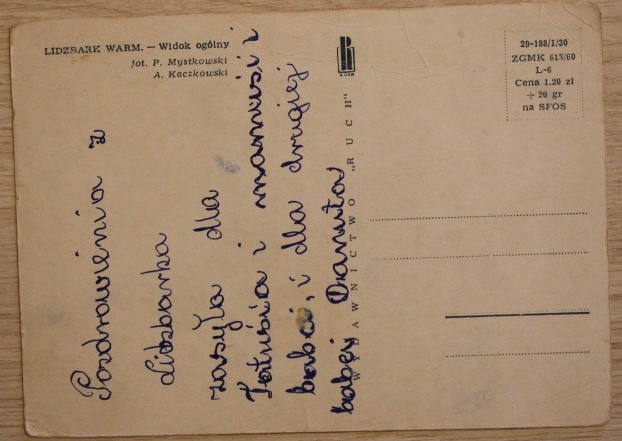 LIDZBARK WARM. — Widok ogólny
fot. P. Mystkowski
A. Kaczkowski
Pozdrowienia z
Lidzbarka
zasyła dla
Tatusia i mamusi i
babci, i dla drugiej
babci Danuta
WYDAWNICTWO „RUCH"
RUCH
29-188/I/30
ZGMK 613/60
L-6
Cena 1.20 zł
+ 20 gr
na SFOS